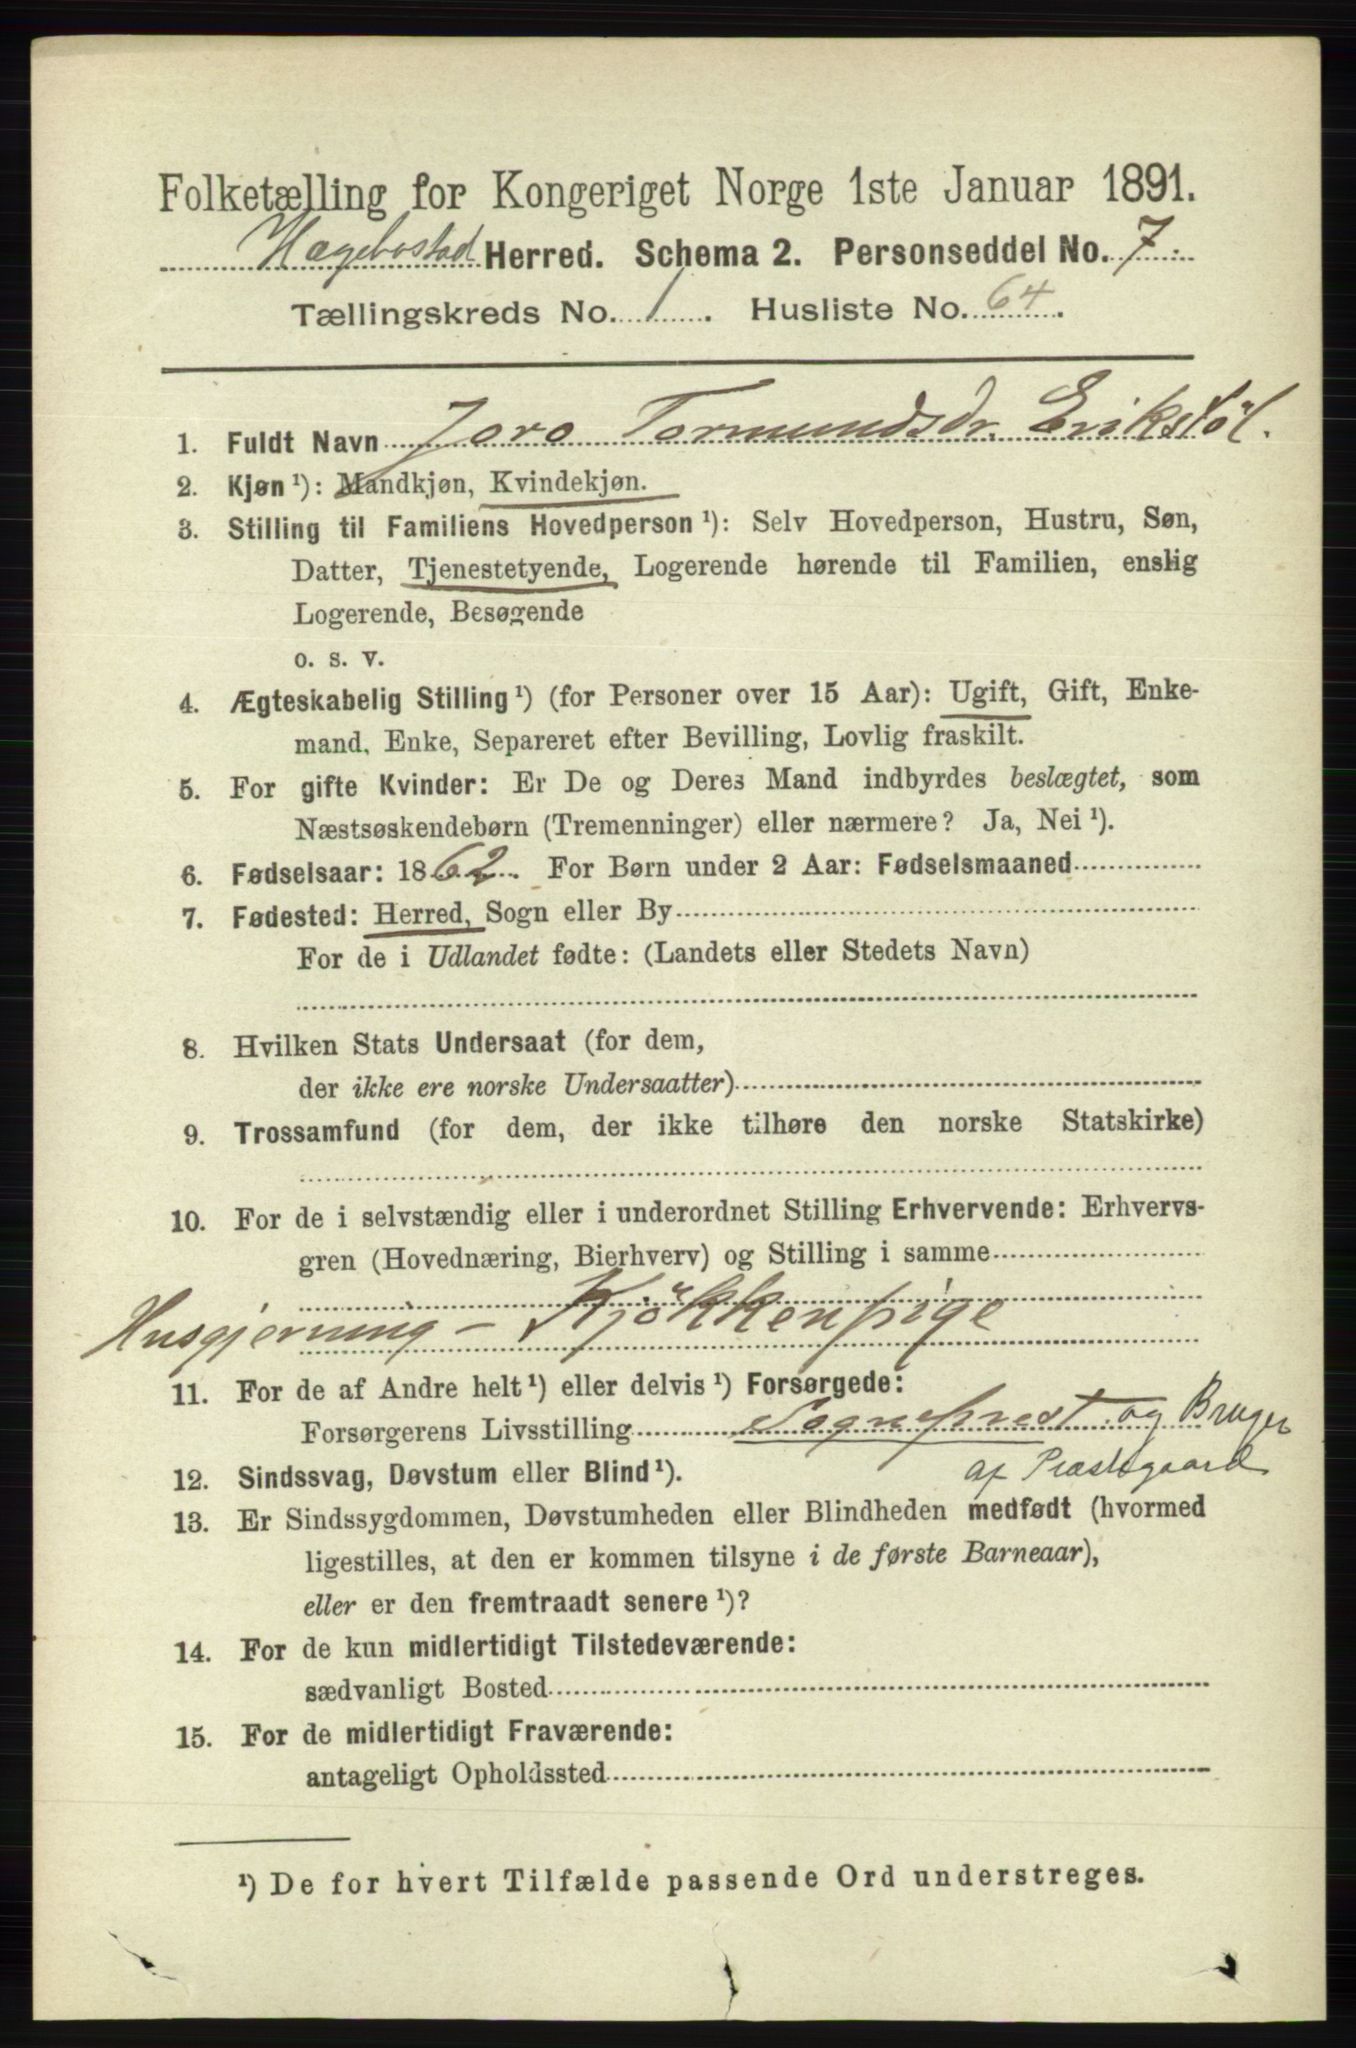 Folketælling for Kongeriget Norge 1ste Januar 1891.
Hægebostad Herred. Schema 2. Personseddel No. 7.
Tællingskreds No. 1. Husliste No. 64.
1. Fuldt Navn Joro Tormundsdr. Erikstöl.
2. Kjøn ¹): Mandkjøn, Kvindekjøn.
3. Stilling til Familiens Hovedperson ¹): Selv Hovedperson, Hustru, Søn,
Datter, Tjenestetyende, Logerende hørende til Familien, enslig
Logerende, Besøgende
o. s. v.
4. Ægteskabelig Stilling ¹) (for Personer over 15 Aar): Ugift, Gift, Enke-
mand, Enke, Separeret efter Bevilling, Lovlig fraskilt.
5. For gifte Kvinder: Er De og Deres Mand indbyrdes beslægtet, som
Næstsøskendebørn (Tremenninger) eller nærmere? Ja, Nei ¹).
6. Fødselsaar: 1862. For Børn under 2 Aar: Fødselsmaaned
7. Fødested: Herred, Sogn eller By
For de i Udlandet fødte: (Landets eller Stedets Navn)
8. Hvilken Stats Undersaat (for dem,
der ikke ere norske Undersaatter)
9. Trossamfund (for dem, der ikke tilhøre den norske Statskirke)
10. For de i selvstændig eller i underordnet Stilling Erhvervende: Erhvervs-
gren (Hovednæring, Bierhverv) og Stilling i samme
Husgjerning - Kjökkenpige
11. For de af Andre helt ¹) eller delvis ¹) Forsørgede:
Forsørgerens Livsstilling Sogneprest og Bruger
af Præstegaard
12. Sindssvag, Døvstum eller Blind ¹).
13. Er Sindssygdommen, Døvstumheden eller Blindheden medfødt (hvormed
ligestilles, at den er kommen tilsyne i de første Barneaar),
eller er den fremtraadt senere ¹)?
14. For de kun midlertidigt Tilstedeværende:
sædvanligt Bosted
15. For de midlertidigt Fraværende:
antageligt Opholdssted
¹) De for hvert Tilfælde passende Ord understreges.